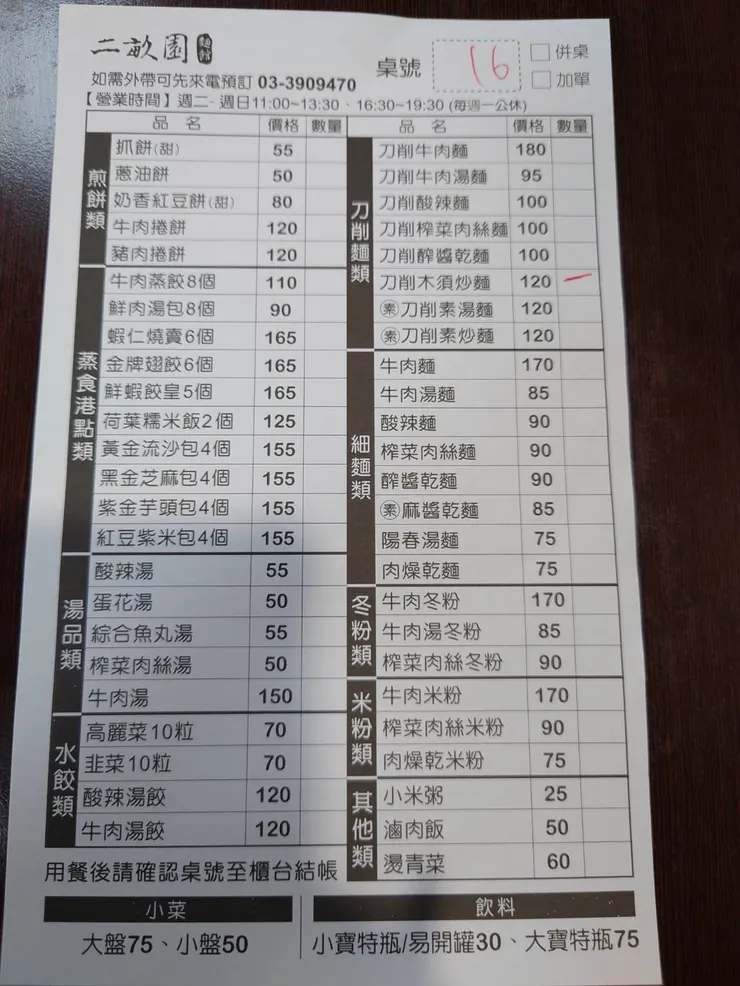 二畝園 麵館
桌號 16
併桌
加單
如需外帶可先來電預訂 03-3909470
【營業時間】週二-週日11:00~13:30、16:30~19:30 (每週一公休)
品 名 價格 數量
煎餅類
抓餅(甜) 55
蔥油餅 50
奶香紅豆餅(甜) 80
牛肉捲餅 120
豬肉捲餅 120
蒸食港點類
牛肉蒸餃8個 110
鮮肉湯包8個 90
蝦仁燒賣6個 165
金牌翅餃6個 165
鮮蝦餃皇5個 165
荷葉糯米飯2個 125
黃金流沙包4個 155
黑金芝麻包4個 155
紫金芋頭包4個 155
紅豆紫米包4個 155
湯品類
酸辣湯 55
蛋花湯 50
綜合魚丸湯 55
榨菜肉絲湯 50
牛肉湯 150
水餃類
高麗菜10粒 70
韭菜10粒 70
酸辣湯餃 120
牛肉湯餃 120
品 名 價格 數量
刀削麵類
刀削牛肉麵 180
刀削牛肉湯麵 95
刀削酸辣麵 100
刀削榨菜肉絲麵 100
刀削醡醬乾麵 100
刀削木須炒麵 120 一
素刀削素湯麵 120
素刀削素炒麵 120
細麵類
牛肉麵 170
牛肉湯麵 85
酸辣麵 90
榨菜肉絲麵 90
醡醬乾麵 90
素麻醬乾麵 85
陽春湯麵 75
肉燥乾麵 75
冬粉類
牛肉冬粉 170
牛肉湯冬粉 85
榨菜肉絲冬粉 90
米粉類
牛肉米粉 170
榨菜肉絲米粉 90
肉燥乾米粉 75
其他類
小米粥 25
滷肉飯 50
燙青菜 60
用餐後請確認桌號至櫃台結帳
小菜
大盤75、小盤50
飲料
小寶特瓶/易開罐30、大寶特瓶75